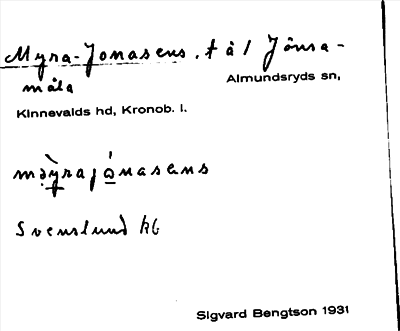 Myra-Jonasens. t å 1 Jönsa-
måla
Almundsryds sn,
Kinnevalds hd, Kronob. l.
Svenslund kl
Sigvard Bengtson 1931